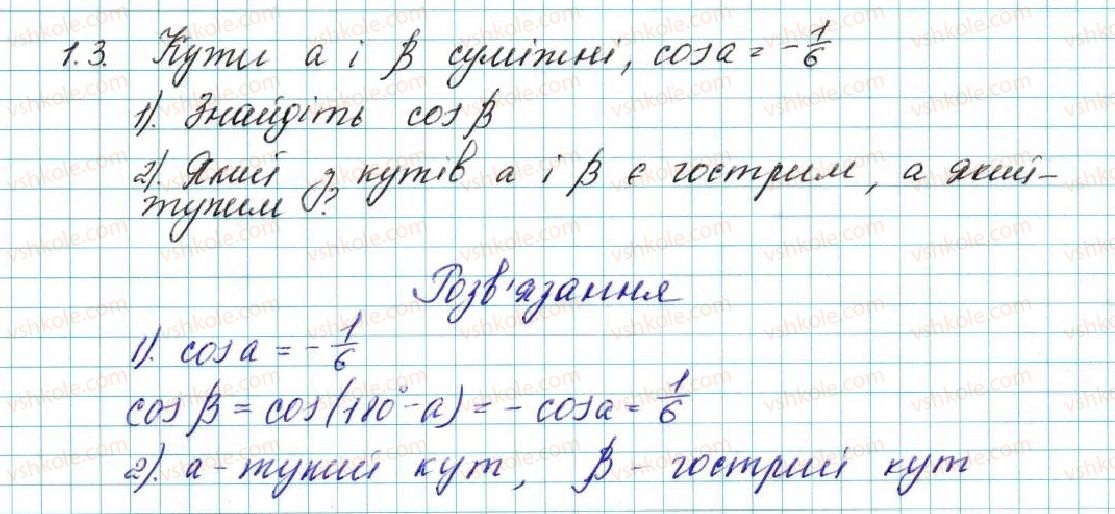 1.3. Кути α і β суміжні, cos α = -1/6
1). Знайдіть cos β
2). Який з кутів α і β є гострим, а який-
тупим?
Розв'язання
1). cos α = -1/6
cos β = cos(180°-α) = - cos α = 1/6
2). α - тупий кут, β - гострий кут
vshkole.com